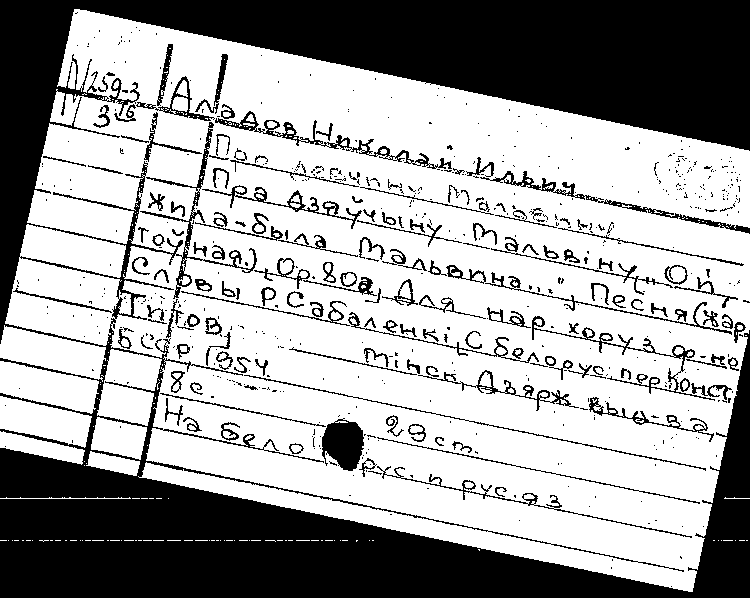 N 259-3
3 16
Аладов Николай Ильич
Про девчину Мальвину.
Пра дзяўчыну Мальвіну, [„Ой,
жила-была Мальвина...“] Песня (жар-
тоўная.), [Ор. 80а], Для нар. хору з ф-но
Словы Р. Сабаленкі, [С белорус. пер. Конст.
Титов],
Мінск, Дзярж. выд-ва,
БССР, 1954
8 с. 29 ст.
На бело рус. и рус. яз